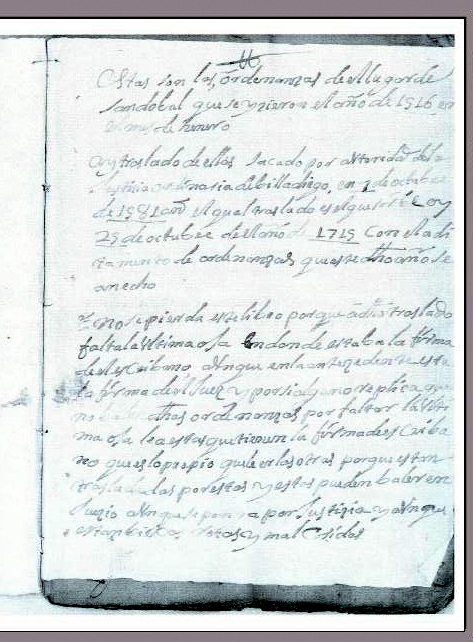 Estas son las ordenanzas del lugar de
sandobal que se yzieron el año de 1516 en
el mes de henero
ay traslado de ellas sacado por autoridad de la
justizia ordinaria de billadiego, en 1 de octubre
de 1581 años el qual traslado es el que se oy
25 de octubre del año de 1715 Con el adi
tamento de ordenanzas que este dho año se
an echo
no se pierda este libro porque a dho traslado
falta la vltima oja en donde estaba la firma
del escribano aunque en la antezedente esta
la firma del Juez y por si alguno replica
dhas ordenanzas por faltar la vlti
ma oja lea estas que tienen la firma del escriba
no que es lo propio que leer las otras porque estan
trasladadas por estas y estas pueden baler en
Juizio aunque se ponga por Justizia y aunque
estan biejas Rotas y mal Cosidas